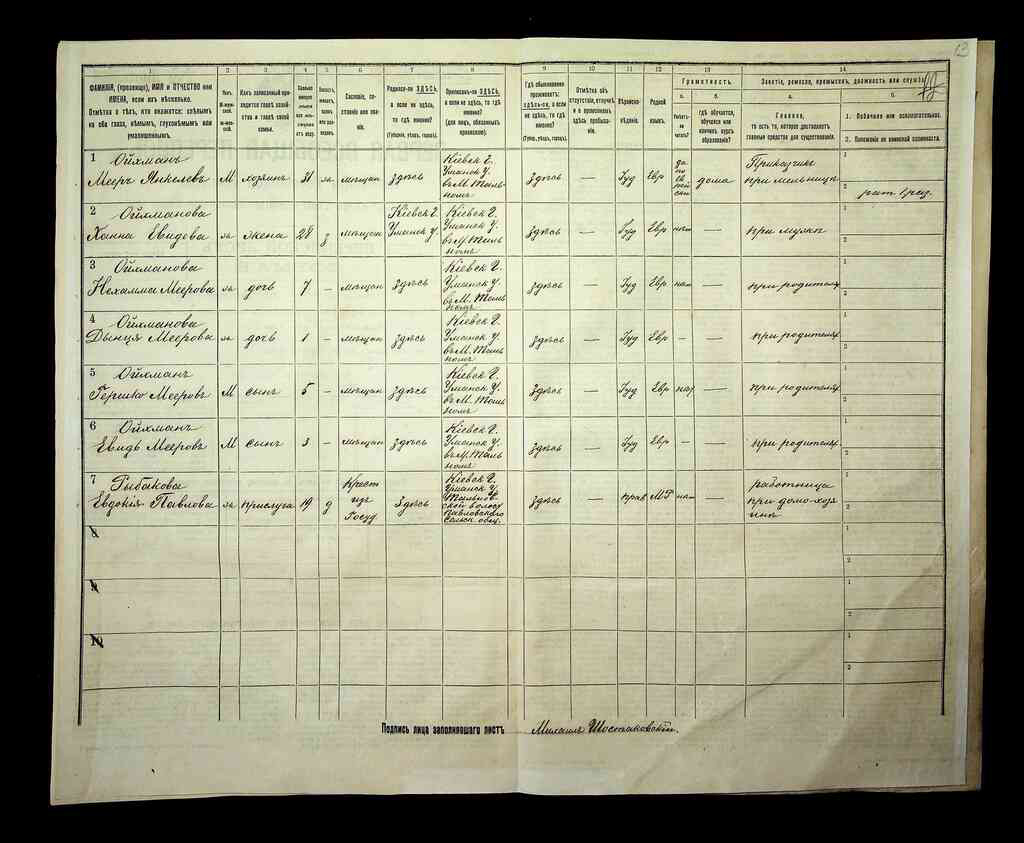 13
1 2 3 4 5 6 7 8 9 10 11 12 13 14
ФАМИЛІЯ, (прозвище), ИМЯ и ОТЧЕСТВО или ИМЕНА, если ихъ нѣсколько.
Отмѣтка о тѣхъ, кто окажется: слѣпымъ на оба глаза, нѣмымъ, глухонѣмымъ или умалишеннымъ.
Полъ.
Какъ записанный приходится главѣ хозяйства и главѣ своей семьи.
Сословіе, состояніе или званіе.
Родился-ли ЗДѢСЬ, а если не здѣсь, то гдѣ именно?
(Губернія, уѣздъ, городъ).
Приписанъ-ли ЗДѢСЬ, а если не здѣсь, то гдѣ именно?
(для лицъ, обязанныхъ припискою)
Гдѣ обыкновенно проживаетъ: здѣсь-ли, а если не здѣсь, то гдѣ именно?
(Губер., уѣздъ, городъ).
Отмѣтка объ отсутствіи, отлучкѣ и о временномъ здѣсь пребываніи.
Вѣроисповѣданіе.
Родной языкъ.
Грамотность.
а. б.
Умѣетъ-ли читать?
гдѣ обучается, обучался или кончилъ курсъ образованія?
Занятіе, ремесло, промыселъ, должность или служба.
а. б.
Главное,
то есть то, которое доставляетъ главныя средства для существованія.
1. Побочное или вспомогательное.
2. Положеніе по воинской повинности.
1 Ойхманъ
Мееръ Янкелевъ М хозяинъ 31 ж мѣщан здѣсь Кіевск Г. Уманск У. въ М. Тальномъ здѣсь — Іуд Евр да по еврейски дома Приказчикъ при мельницѣ
2 Ойхманова
Ханна Евидева ж жена 28 мѣщан Кіевск Г. Уманск У. Кіевск Г. Уманск У. въ М. Тальномъ здѣсь — Іуд Евр нѣт — при мужѣ
3 Ойхманова
Нехамма Меерова ж дочь 7 — мѣщан здѣсь Кіевск Г. Уманск У. въ М. Тальномъ здѣсь — Іуд Евр нѣт — при родителях
4 Ойхманова
Меерова ж дочь 1 — мѣщан здѣсь Кіевск Г. Уманск У. въ М. Тальномъ здѣсь — Іуд Евр — — при родителях
5 Ойхманъ
Гершко Мееровъ М сынъ 5 — мѣщан здѣсь Кіевск Г. Уманск У. въ М. Тальномъ здѣсь — Іуд Евр нѣт — при родителях
6 Ойхманъ
Евидь Мееровъ М сынъ 3 — мѣщан здѣсь Кіевск Г. Уманск У. въ М. Тальномъ здѣсь — Іуд Евр — — при родителях
7 Рыбакова
Евдокія Павлова ж прислуга 19 д Крест из Госуд здѣсь Кіевск Г. Уманск У. волост Павловскаго Сельск общ. здѣсь — прав МР — работница при домохозяине
8
9
10
Подпись лица заполнявшаго листъ Михаилъ Шостаковскій.